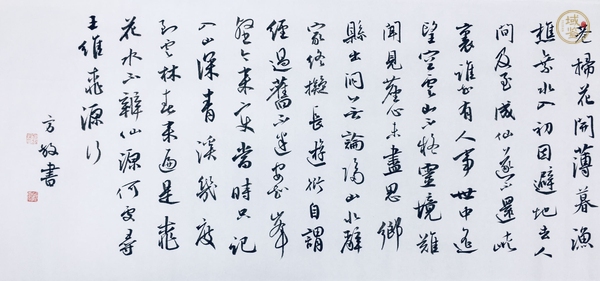 巷掃花開薄暮漁
樵乘水入初因避地去人
間及至成仙遂不還峽
裏誰知有人事世中遙
望空雲山不疑靈境難
聞見塵心未盡思鄉
縣出洞無論隔山水辭
家終擬長遊衍自謂
經過舊不迷安知峰
壑今來變當時只記
入山深青溪幾度
到雲林春來遍是桃
花水不辨仙源何處尋
王維桃源行
方書
域鉴